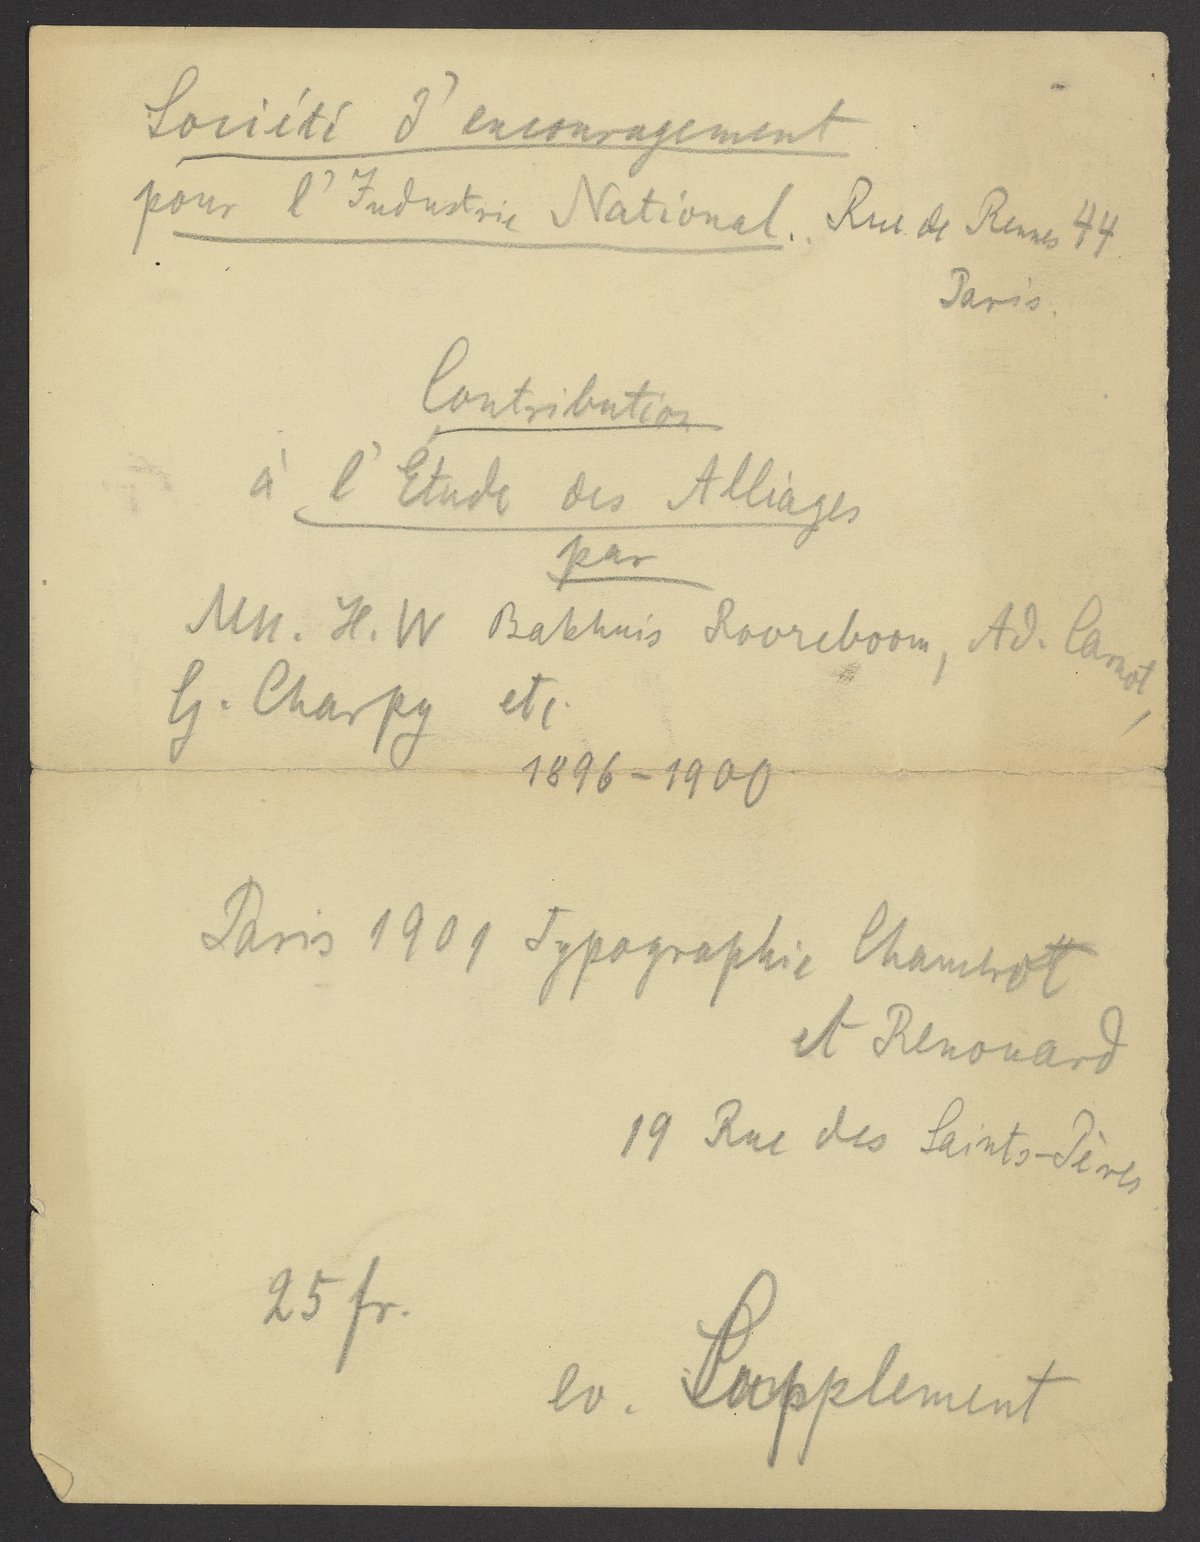 Société d'encouragement
pour l'Industrie National. Rue de Rennes 44
Paris.
Contribution
à l'Étude des Alliages
par
MM. H. W Bakhuis Rooreboom, Ad. Carnot,
G. Charpy etc.
1896-1900
Paris 1901 Typographie Chamerott
et Renouard
19 Rue des Saints-Pères
25 fr.
ev. Supplement